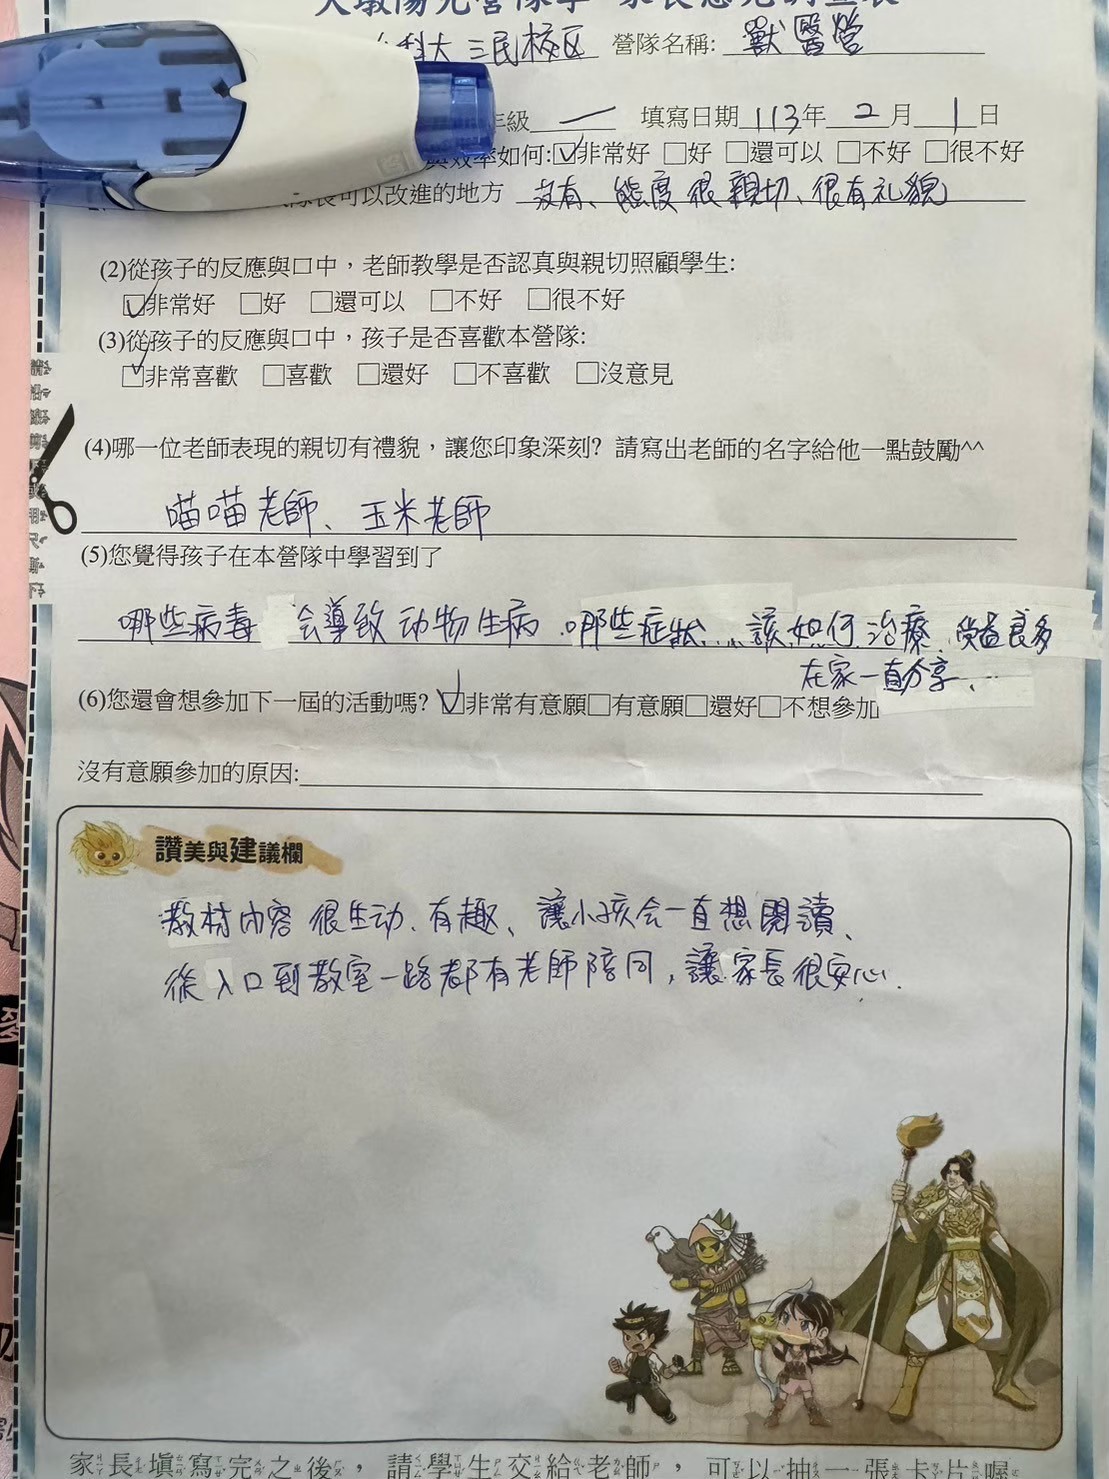 科大 三民校区 營隊名稱: 獸醫營
年級 一 填寫日期 113年 2 月 1 日
效率如何:☑非常好 □好 □還可以 □不好 □很不好
可以改進的地方 沒有、態度很親切、很有礼貌
(2)從孩子的反應與口中，老師教學是否認真與親切照顧學生:
☑非常好 □好 □還可以 □不好 □很不好
(3)從孩子的反應與口中，孩子是否喜歡本營隊:
☑非常喜歡 □喜歡 □還好 □不喜歡 □沒意見
(4)哪一位老師表現的親切有禮貌，讓您印象深刻? 請寫出老師的名字給他一點鼓勵^^
喵喵老師、玉米老師
(5)您覺得孩子在本營隊中學習到了
哪些病毒 会導致动物生病.哪些症狀...該如何治療、受益良多
在家一直分享、
(6)您還會想參加下一屆的活動嗎? ☑非常有意願□有意願□還好□不想參加
沒有意願參加的原因:
讚美與建議欄
教材內容很生动、有趣、讓小孩会一直想閱讀、
從入口到教室一路都有老師陪同，讓家長很安心.
家長填寫完之後，請學生交給老師，可以抽一張卡片喔